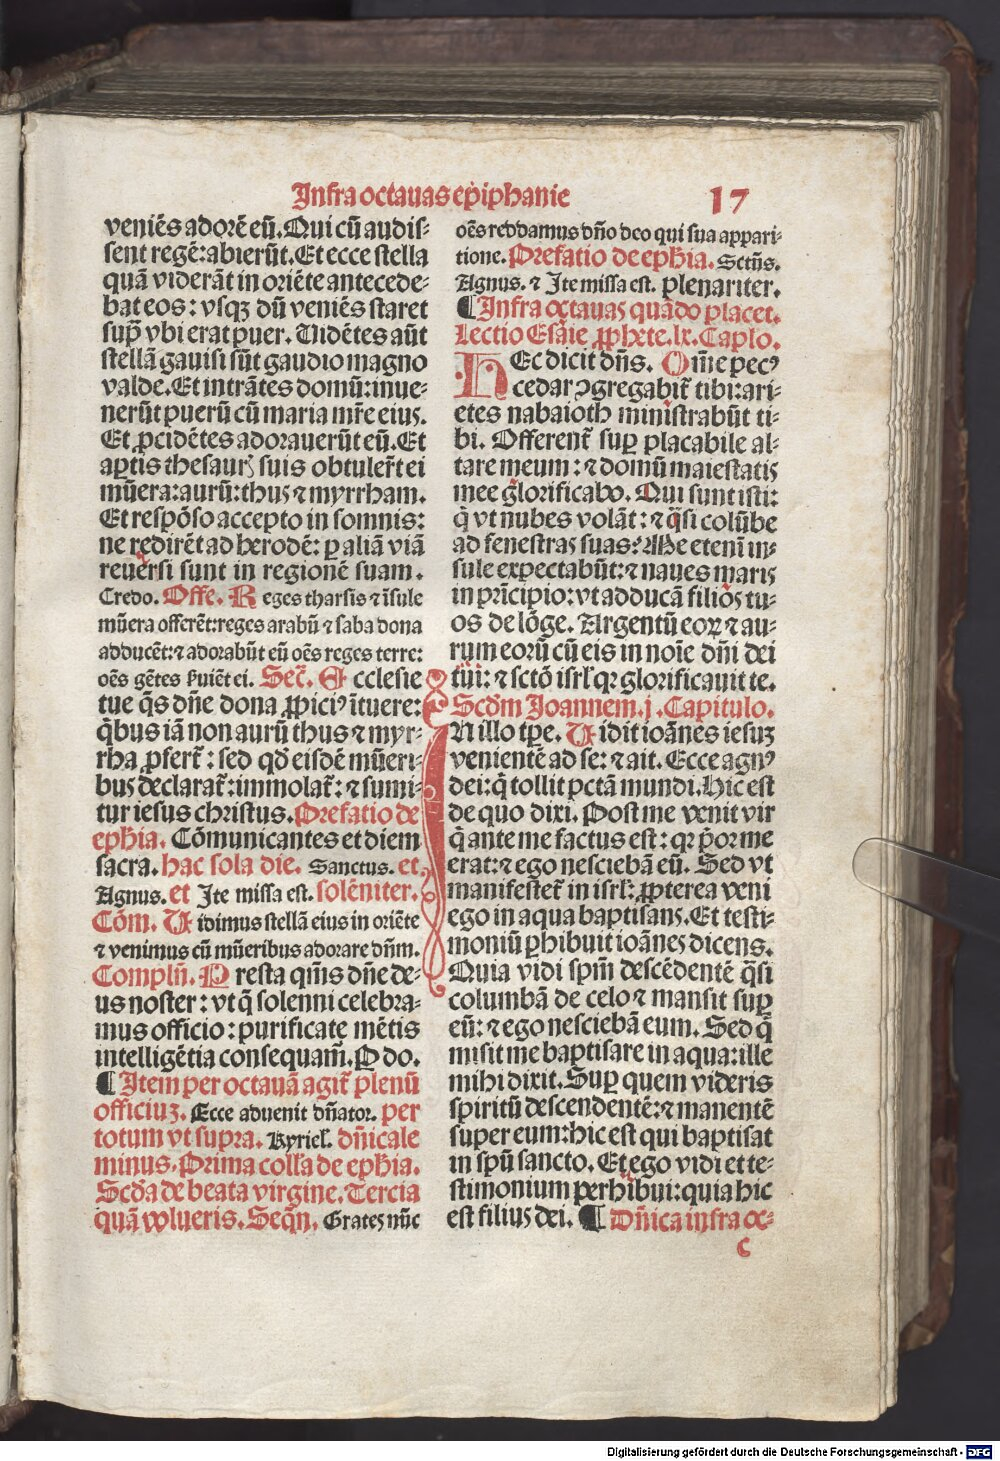 Infra octauas epiphanie 17
veniẽs adorẽ eũ. Qui cũ audis⸗
sent regẽ: abierũt. Et ecce stella
quã viderãt in oriẽte antecede⸗
bat eos: vsqꝫ dũ veniẽs staret
supꝰ vbi erat puer. Uidẽtes aũt
stellã gauisi sũt gaudio magno
valde. Et intrãtes domũ: inue⸗
nerũt puerũ cũ maria mr̃e eius.
Et ꝓcidẽtes adorauerũt eũ. Et
aꝑtis thesaur̃ suis obtuler̃t ei
mũera: aurũ: thus ⁊ myrrham.
Et respõso accepto in somnis:
ne redirẽt ad herodẽ: ꝑ aliã viã
reuersi sunt in regionẽ suam.
Credo. Offe. Reges tharsis ⁊ ĩsule
mũera offerẽt: reges arabũ ⁊ saba dona
adducẽt: ⁊ adorabũt eũ oẽs reges terre:
oẽs gẽtes ẜuiẽt ei. Sec̃. Ecclesie
tue q̃s dñe dona ꝓpiciꝰ ĩtuere:
q̃bus iã non aurũ thus ⁊ myr⸗
rha ꝓfert̃: sed qđ eisdẽ mũeri⸗
bus declarat̃: immolat̃: ⁊ sumi⸗
tur iesus christus. Prefatio de
eph̃ia. Cõmunicantes et diem
sacra. hac sola die. Sanctus. et
Agnus. et Ite missa est. solẽniter.
Cõm. Uidimus stellã eius in oriẽte
⁊ venimus cũ mũeribus adorare dñm.
Complñ. Presta qm̃s dñe de⸗
us noster: vt q̃ solenni celebra⸗
mus officio: purificate mẽtis
intelligẽtia consequam̃. P do.
¶ Item per octauã agit̃ plenũ
officiuꝫ. Ecce aduenit dñator. per
totum vt supra. Kyriel̃. dñicale
minus. Prima coll̃a de eph̃ia.
Scđa de beata virgine. Tercia
quã volueris. Seq̃n. Grates nũc
oẽs reddamus dño deo qui sua appari⸗
tione. Prefatio de eph̃ia. Sctũs.
Agnus. ⁊ Ite missa est. plenariter.
¶ Infra octauas quãdo placet.
Lectio Esaie ꝓphete. lx. Caplo.
HEc dicit dñs. Om̃e pecꝰ
cedar ꝯgregabit̃ tibi: ari⸗
etes nabaioth ministrabũt ti⸗
bi. Offerent̃ suꝑ placabile al⸗
tare meum: ⁊ domũ maiestatis
mee glorificabo. Qui sunt isti:
q̃ vt nubes volãt: ⁊ q̃si colũbe
ad fenestras suas? Me etenĩ in⸗
sule expectabũt: ⁊ naues maris
in prĩcipio: vt adducã filios tu⸗
os de lõge. Argentũ eoꝝ ⁊ au⸗
rum eorũ cũ eis in noĩe dñi dei
tui: ⁊ sctõ isrl̃ qꝛ glorificauit te.
Scđm Joannem. j. Capitulo.
IN illo tꝑe. Uidit ioãnes iesuꝫ
venientẽ ad se: ⁊ ait. Ecce agnꝰ
dei: q̃ tollit pctã mundi. Hic est
de quo dixi. Post me venit vir
q̃ ante me factus est: qꝛ p̃or me
erat: ⁊ ego nesciebã eũ. Sed vt
manifestet̃ in isrl̃: ꝓpterea veni
ego in aqua baptisans. Et testi⸗
moniũ ꝑhibuit ioãnes dicens.
Quia vidi spm̃ descẽdentẽ q̃si
columbã de celo ⁊ mansit suꝑ
eũ: ⁊ ego nesciebã eum. Sed q̃
misit me baptisare in aqua: ille
mihi dixit. Suꝑ quem videris
spiritũ descendentẽ: ⁊ manentẽ
super eum: hic est qui baptisat
in spũ sancto. Et ego vidi et te⸗
stimonium perhibui: quia hic
est filius dei. ¶ Dñica infra oc⸗
c
Digitalisierung gefördert durch die Deutsche Forschungsgemeinschaft - DFG